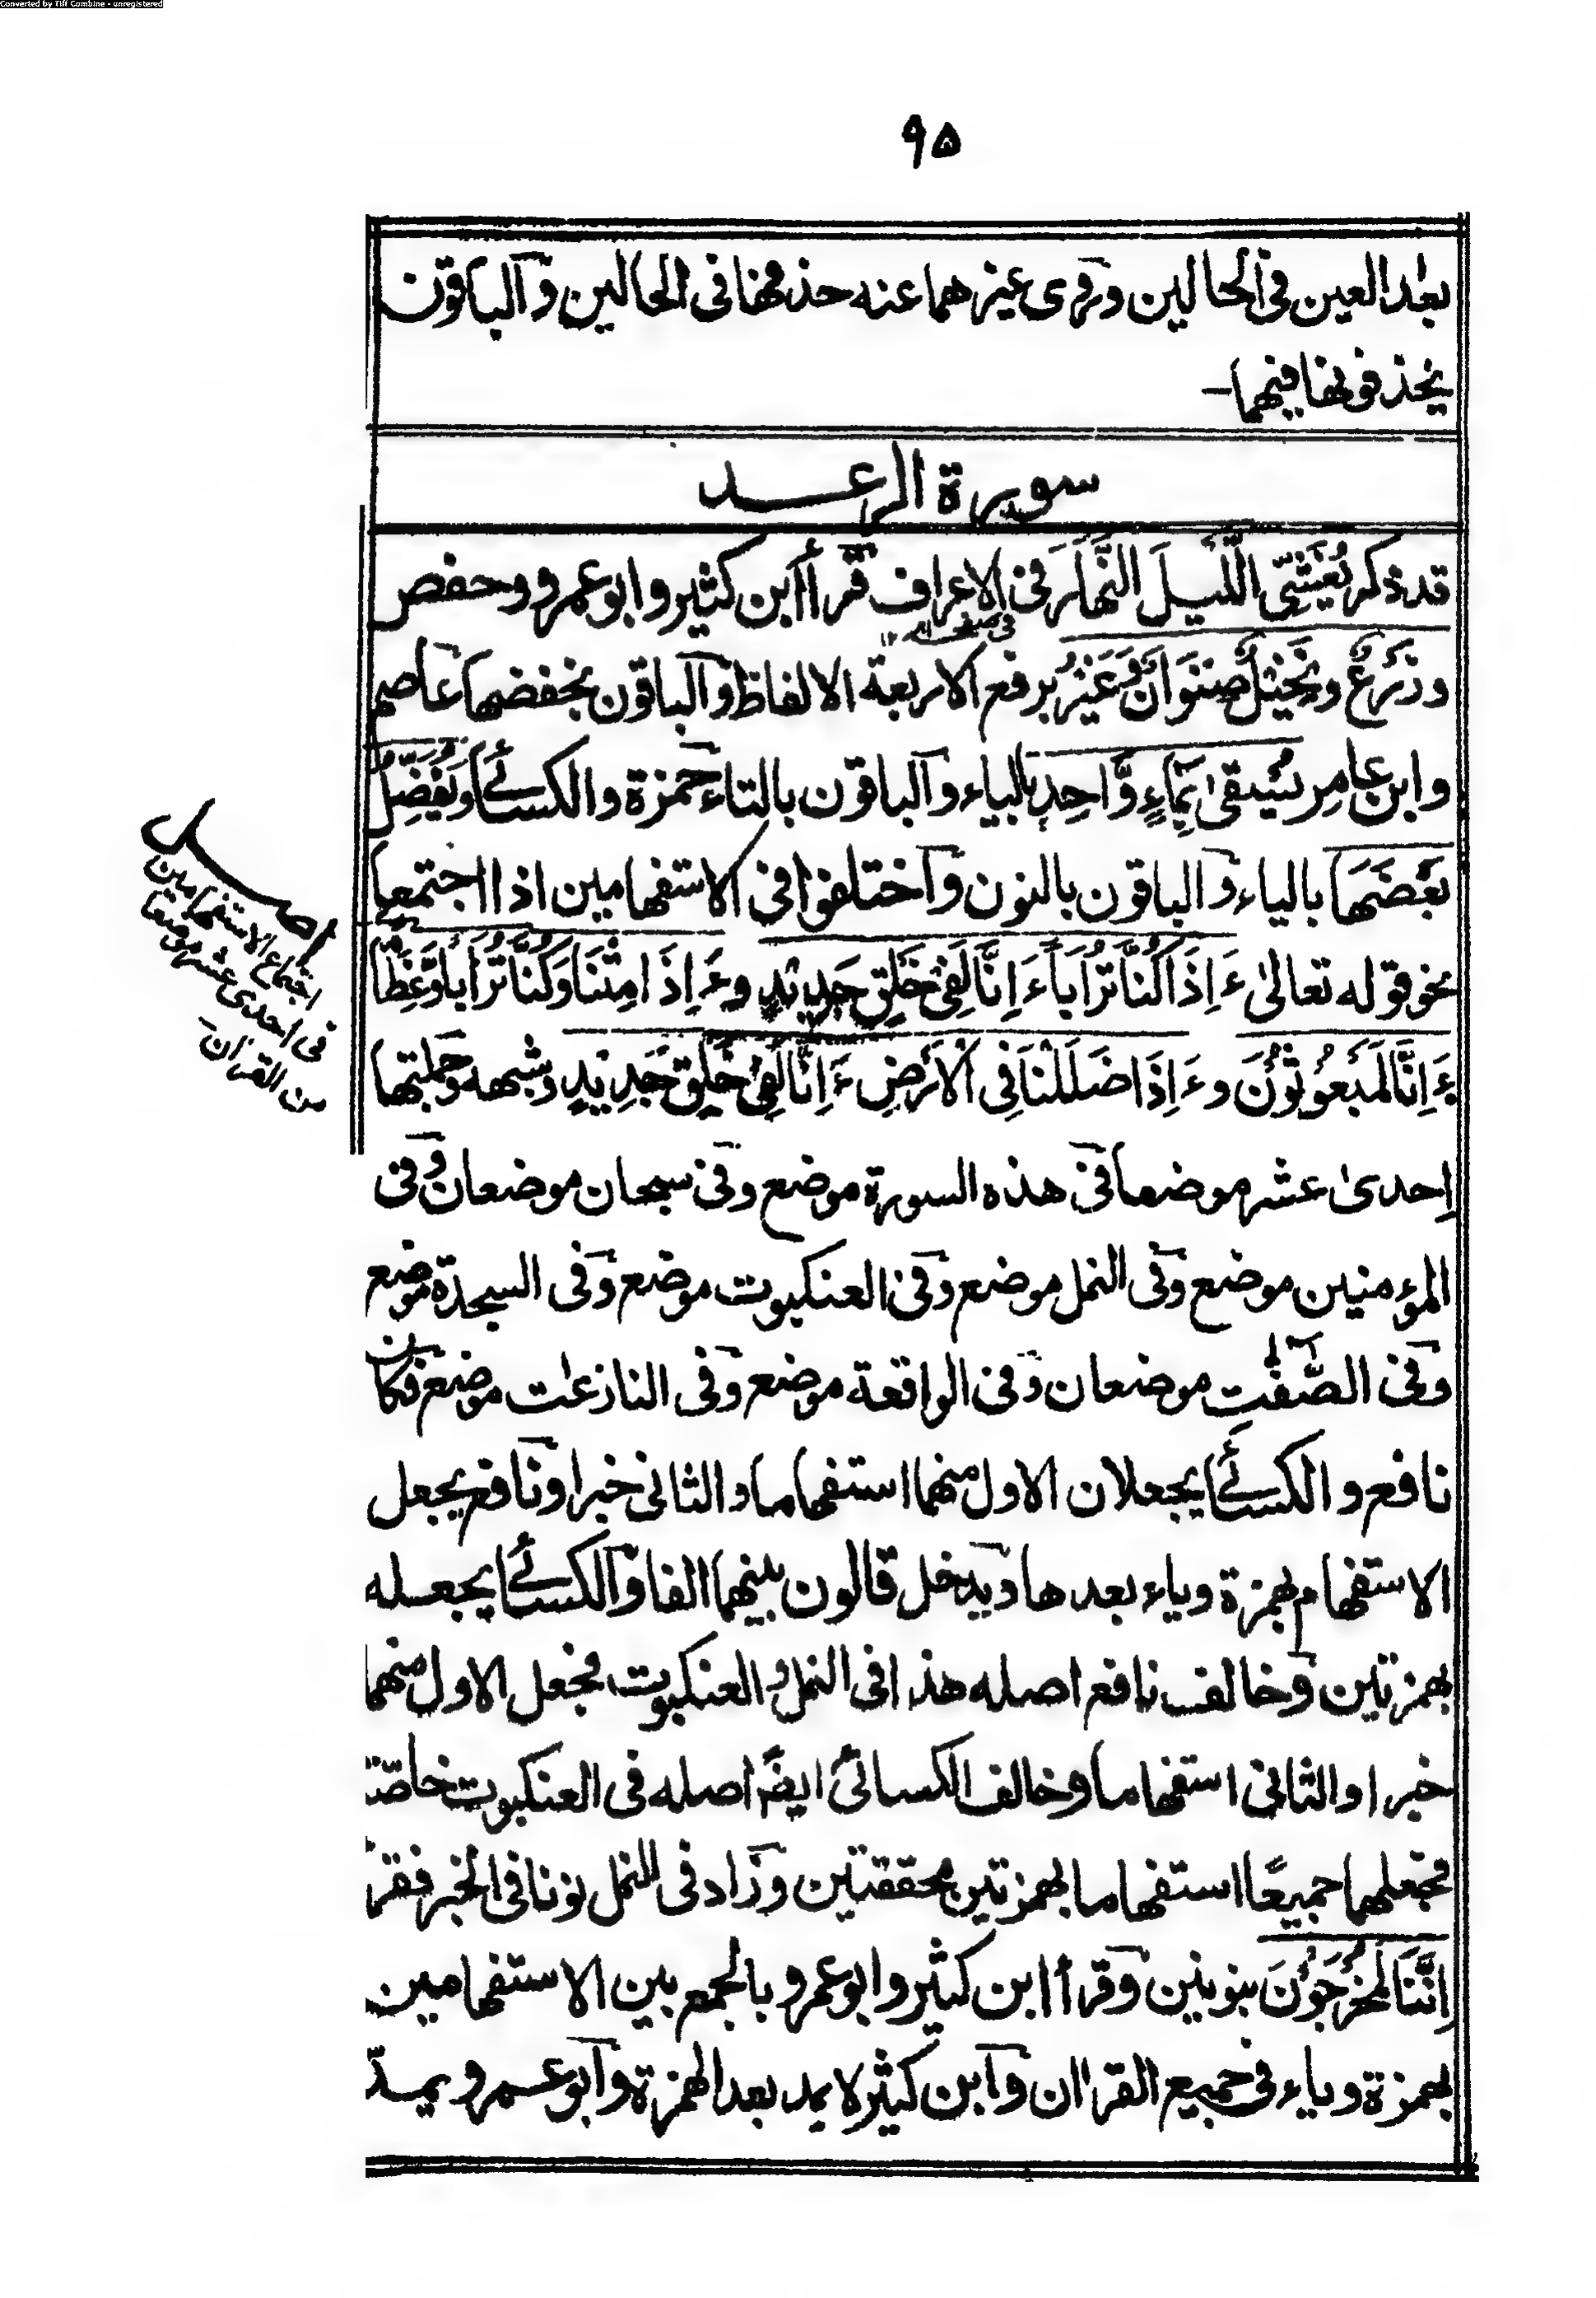 Converted by Tiff Combine - unregistered
٩٥
بعد العين فى الحالين وروى غيرهما عنه حذفها فى الحالين والباقون
يحذفونها فيهما-
سورة الرعد
قد ذكر يُغْشِى الَّيْلَ النَّهَارَ فى الاعراف قرأ ابن كثير وابو عمرو وحفص
وزَرْعٌ ونَخِيْلٌ صِنْوَانٌ وَّغَيْرُ برفع الاربعة الالفاظ والباقون بخفضها عاصم
وابن عامر يُسْقىٰ بِمَاءٍ وَّاحِدٍ بالياء والباقون بالتاء حمزة والكسائے وَيُفَضِّلُ
بَعْضَهَا بالياء والباقون بالنون واختلفوا فى الاستفهامين اذا اجتمعا
نحو قوله تعالىٰ ءَاِذَا كُنَّا تُرَابًا ءَاِنَّا لَفِىْ خَلْقٍ جَدِيْدٍ وءَاِذَا مِتْنَا وَكُنَّا تُرَابًا وَّعِظَامًا
ءَاِنَّا لَمَبْعُوْثُوْنَ وءَاِذَا ضَلَلْنَا فِى الْاَرْضِ ءَاِنَّا لَفِىْ خَلْقٍ جَدِيْدٍ وشبهه وجملتها
اِحدىٰ عشر موضعا فى هذه السورة موضع وفى سبحان موضعان وفى
المؤمنين موضع وفى النمل موضع وفى العنكبوت موضع وفى السجدة موضع
وفى الصّٰفّٰتِ موضعان وفى الواقعة موضع وفى النازعٰت موضع فكان
نافع والكسائے يجعلان الاول منهما استفهاما والثانى خبرا ونافع يجعل
الاستفهام بهمزة وياء بعدها ويدخل قالون بينهما الفا والكسائے يجعله
بهمزتين وخالف نافع اصله هذا فى النمل والعنكبوت فجعل الاول منهما
خبرا والثانى استفهاما وخالف الكسائى ايضًا اصله فى العنكبوت خاصة
فجعلهما جميعًا استفهاما بهمزتين محققتين وزاد فى النمل نونا فى الخبر فقرأ
اِنَّنَا لَمُخْرَجُوْنَ بنونين وقرأ ابن كثير وابو عمرو بالجمع بين الاستفهامين
بهمزة وياء فى جميع القراٰن وابن كثير لا يمد بعد الهمزة وابو عمرو يمدّ
اصل
اجتماع الاستفهامين
فى احدى عشر موضعا
من القراٰن